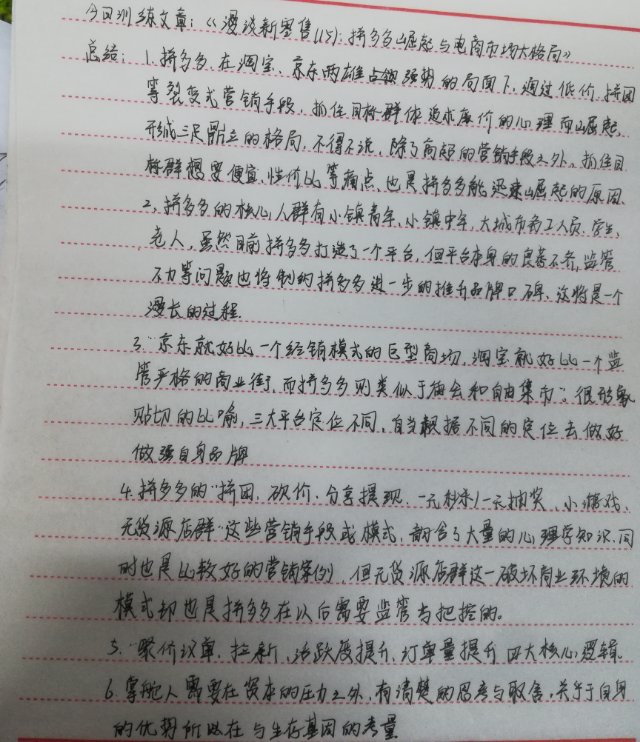 今日训练文章：《漫谈新零售(15)：拼多多崛起与电商市场大格局》
总结：1.拼多多在淘宝、京东两雄占据强势的局面下，通过低价、拼团
等裂变式营销手段，抓住目标群体追求廉价的心理而崛起，
形成三足鼎立的格局，不得不说，除了高超的营销手段之外，抓住目
标群想要便宜、性价比等痛点，也是拼多多能迅速崛起的原因。
2，拼多多的核心人群有小镇青年、小镇中年、大城市务工人员、学生、
老人，虽然目前拼多多打造了一个平台，但平台本身的良莠不齐，监管
不力等问题也将制约拼多多进一步的推升品牌口碑，这将是一个
漫长的过程。
3."京东就好比一个经销模式的巨型商场，淘宝就好比一个监
管严格的商业街，而拼多多则类似于庙会和自由集市"。很形象
贴切的比喻，三大平台定位不同，自当根据不同的定位去做好
做强自身品牌
4.拼多多的"拼团、砍价、分享提现、一元秒杀/一元抽奖、小游戏、
无货源店群"这些营销手段或模式，韵含了大量的心理学知识，同
时也是比较好的营销案例，但无货源店群这一破坏商业环境的
模式却也是拼多多在以后需要监管与把控的。
5."聚价议单、拉新、活跃度提升、订单量提升"四大核心逻辑。
6.掌舵人需要在资本的压力之外，有清楚的思考与取舍，关于于自身
的优势所以在与生存基因的考量